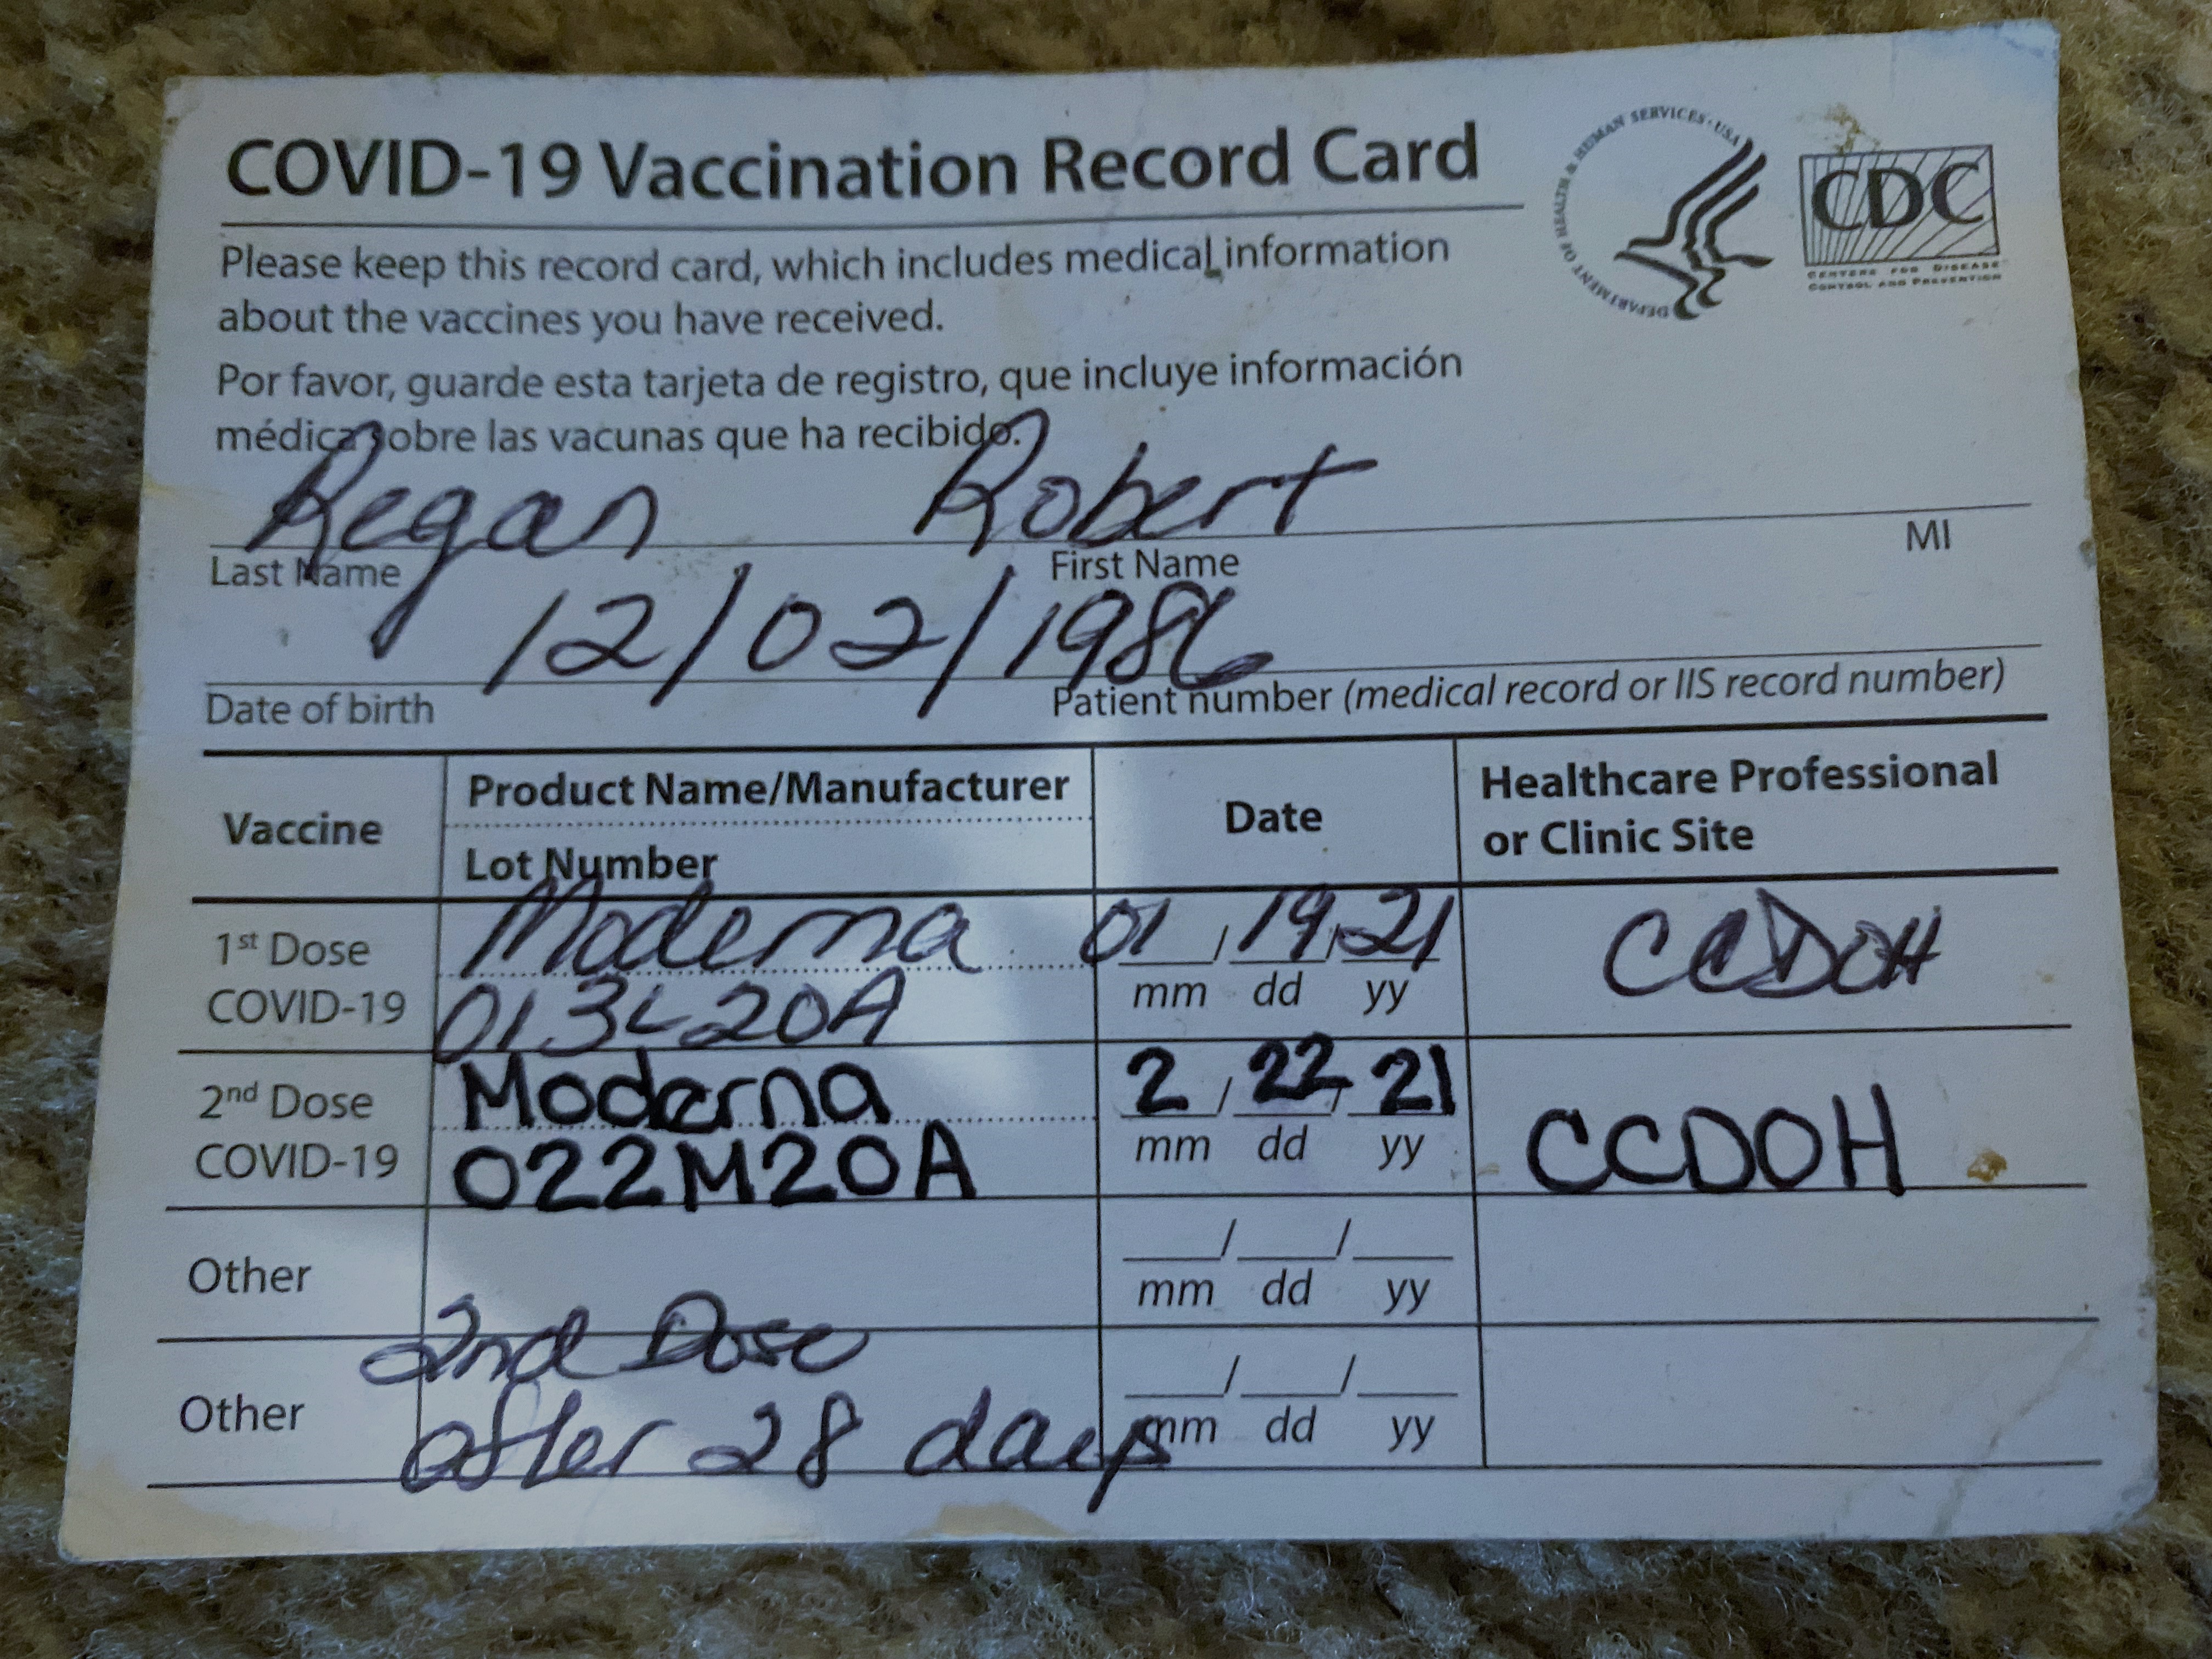 COVID-19 Vaccination Record Card
DEPARTMENT OF HEALTH & HUMAN SERVICES · USA
CDC
CENTERS FOR DISEASE
CONTROL AND PREVENTION
Please keep this record card, which includes medical information
about the vaccines you have received.
Por favor, guarde esta tarjeta de registro, que incluye información
médica sobre las vacunas que ha recibido.
Regan Robert
Last Name First Name MI
12/02/1986
Date of birth Patient number (medical record or IIS record number)
Vaccine Product Name/Manufacturer Date Healthcare Professional
Lot Number or Clinic Site
1st Dose Moderna 01 / 19 / 21 CCDOH
COVID-19 013L20A mm dd yy
2nd Dose Moderna 2 / 22 / 21 CCDOH
COVID-19 022M20A mm dd yy
Other / /
mm dd yy
2nd Dose
Other / /
after 28 days mm dd yy